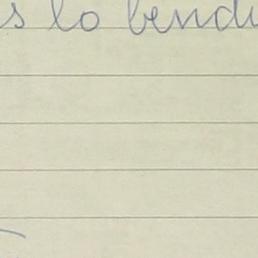 s lo bendi